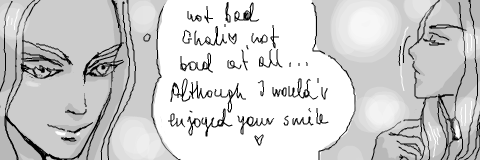 not bad
Ghaliv not
bad at all...
Although I would'v
enjoyed your smile
♡